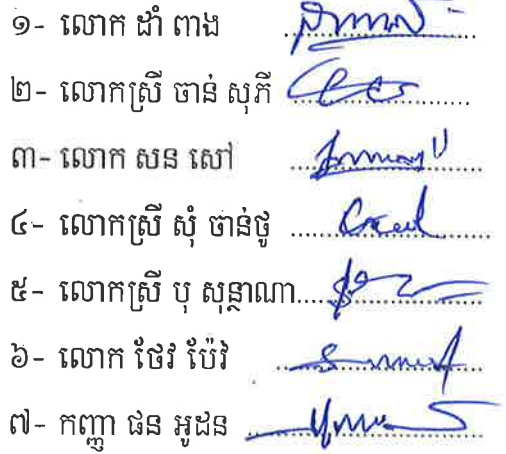 ១- លោក ដាំ ពាង ........................
២- លោកស្រី ចាន់ សុភី ........................
៣- លោក សន សៅ ........................
៤- លោកស្រី សុំ ចាន់ថូ ........................
៥- លោកស្រី បុ សុន្ថាណា........................
៦- លោក ថែវ ប៉ែវ ........................
៧- កញ្ញា ផន អូដន ........................